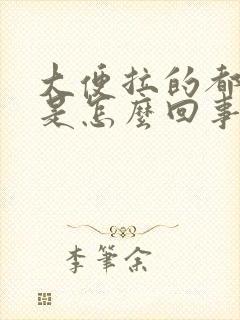 大便拉的都
是怎麼回事
李筆余